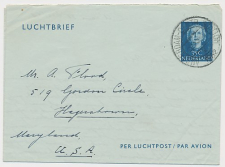 LUCHTBRIEF
NEDERLAND
Mr. A. Flood
519 Gordon Circle
Hagerstown,
Maryland
U.S.A.
PER LUCHTPOST/PAR AVION